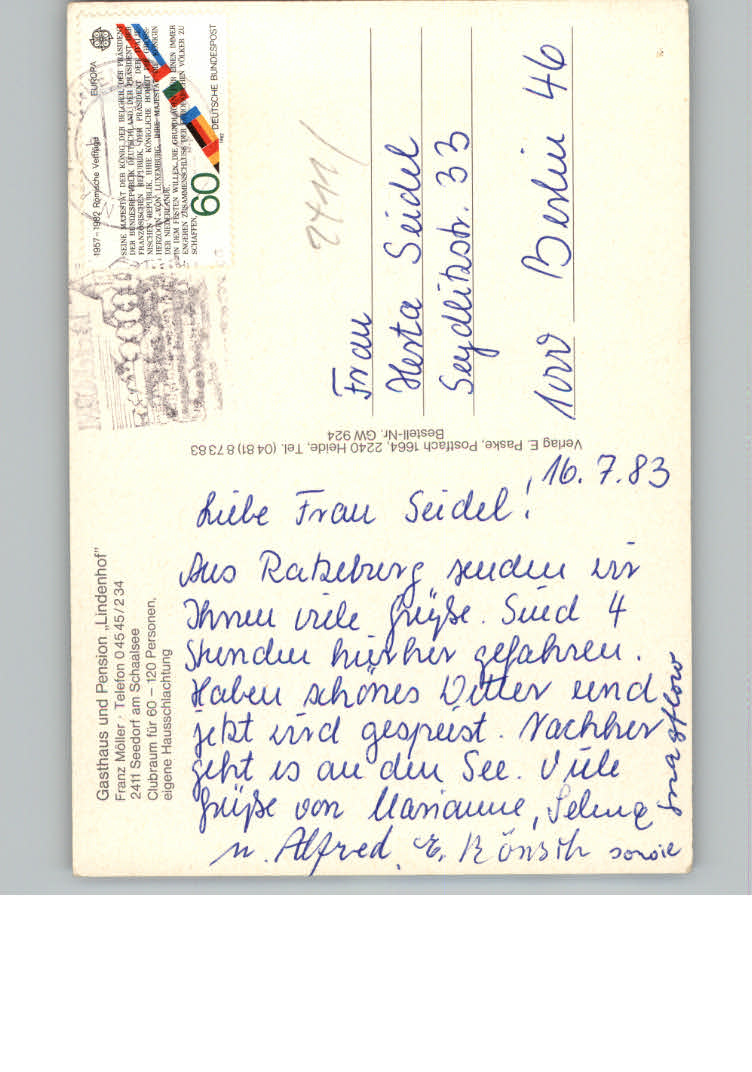 Gasthaus und Pension „Lindenhof"
Franz Möller · Telefon 0 45 45 / 2 34
2411 Seedorf am Schaalsee
Clubraum für 60 – 120 Personen,
eigene Hausschlachtung
16.7.83
Liebe Frau Seidel!
Aus Ratzeburg senden wir
Ihnen viele Grüße. Sind 4
Stunden hierher gefahren.
Haben schönes Wetter und
jetzt wird gespeist. Nachher
geht es an den See. Viele
Grüße von Marianne,
u. Alfred, sowie
Verlag E. Paske, Postfach 1664, 2240 Heide, Tel. (04 81) 8 73 83
Bestell-Nr. GW 924
2411
Frau
Herta Seidel
Seydlitzstr. 33
1000 Berlin 46
1957–1982 Römische Verträge EUROPA
SEINE MAJESTÄT DER KÖNIG DER BELGIER, DER PRÄSIDENT
DER BUNDESREPUBLIK DEUTSCHLAND, DER PRÄSIDENT DER
FRANZÖSISCHEN REPUBLIK, DER PRÄSIDENT DER ITALIE-
NISCHEN REPUBLIK, IHRE KÖNIGLICHE HOHEIT DIE GROSS-
HERZOGIN VON LUXEMBURG, IHRE MAJESTÄT DIE KÖNIGIN
DER NIEDERLANDE,
IN DEM FESTEN WILLEN, DIE GRUNDLAGEN FÜR EINEN IMMER
ENGEREN ZUSAMMENSCHLUSS DER EUROPÄISCHEN VÖLKER ZU
SCHAFFEN,
60
DEUTSCHE BUNDESPOST
1982